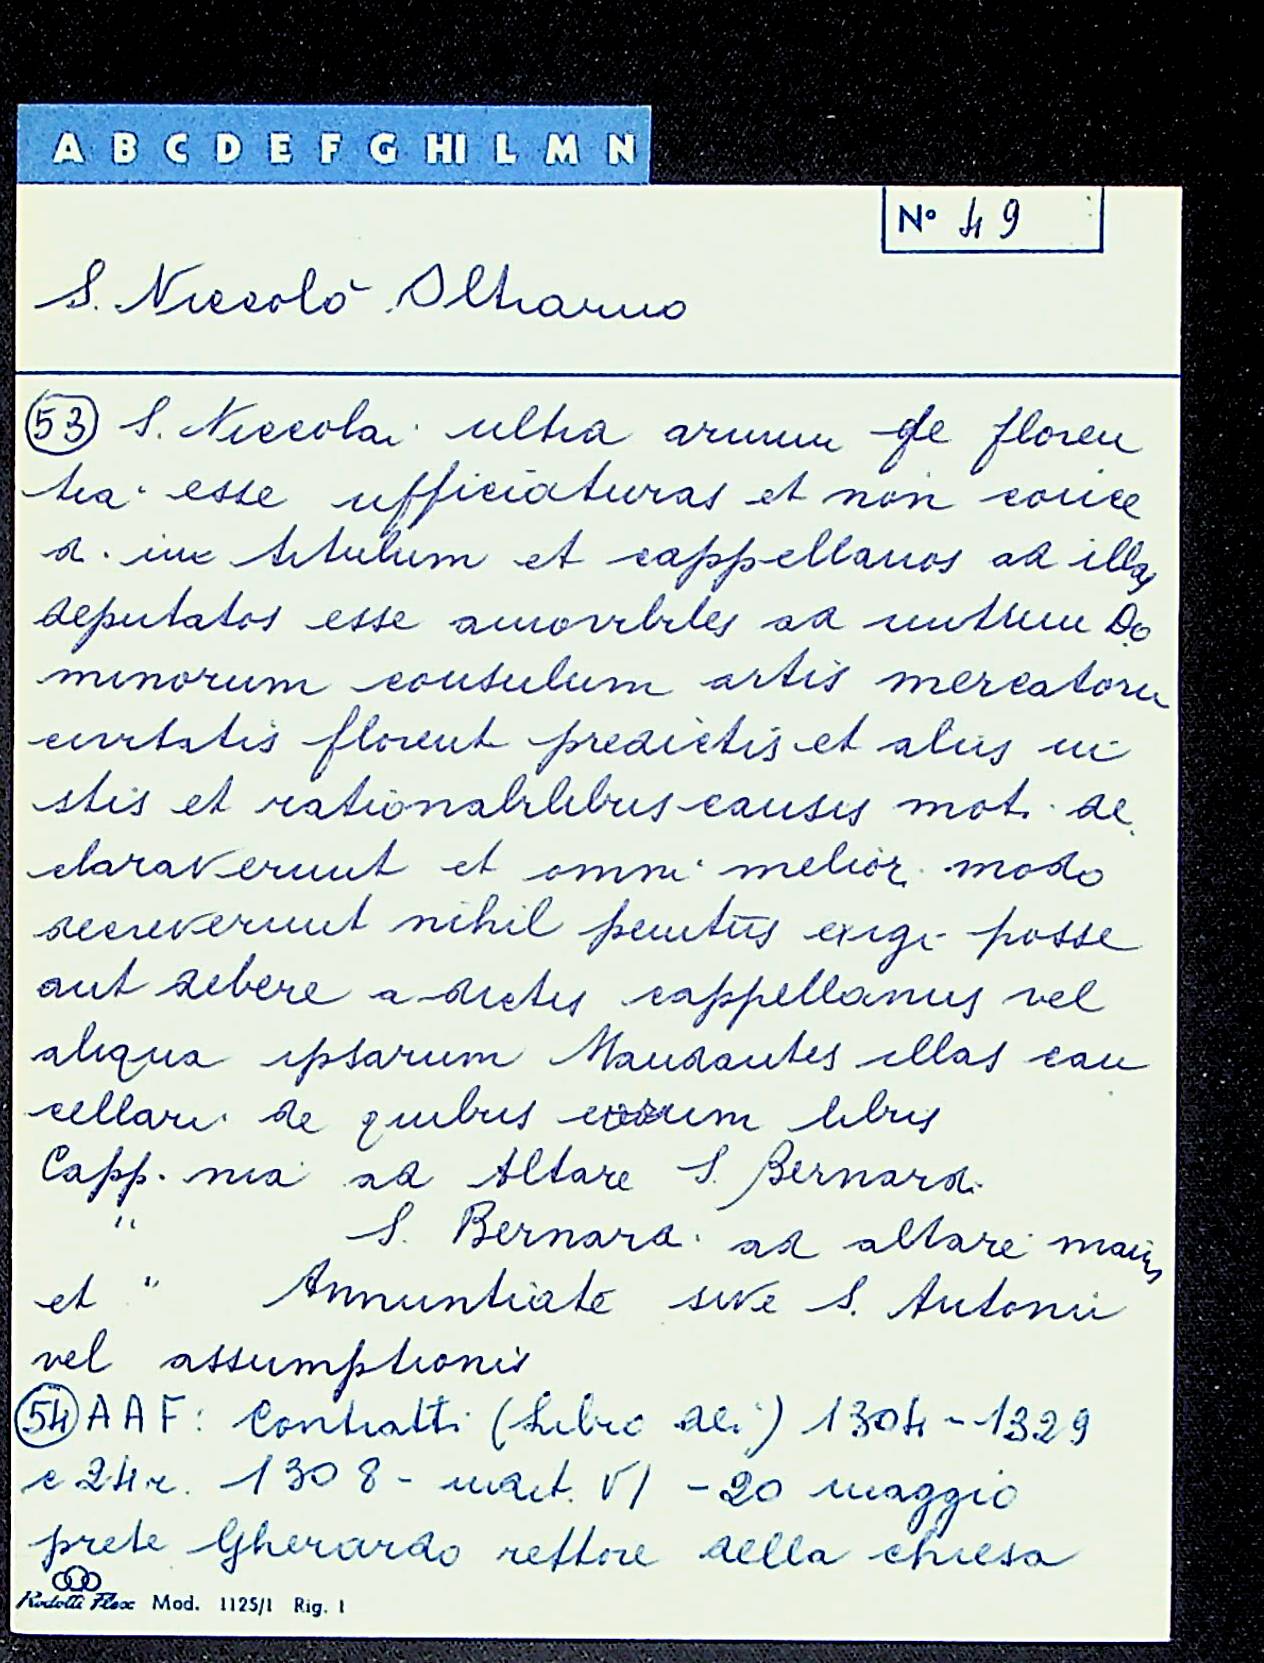 A B C D E F G HI L M N
N° 49
S. Niccolò Oltrarno
53 S. Niccolai ultra arnum de floren
tia esse ufficiaturas et non conce
di in titulum et cappellanos ad illas
deputatos esse amovibiles ad nutum Do
minorum consulum artis mercatoru
civitatis florent predictis et aliis iu
stis et rationabilibus causis moti de
claraverunt et omni melior. modo
decreverunt nihil penitus exigi posse
aut debere a dictis cappellanus vel
aliqua ipsarum Mandantes illas can
cellari de quibus eorum libris
Capp. nia ad Altare S. Bernardi
" S. Bernardi ad altare maius
et " Annuntiate sive S. Antonii
vel assumptionis
54 AAF: Contratti (Libro dei) 1304-1329
c 24r. 1308 - indict. VI - 20 maggio
prete Gherardo rettore della chiesa
Rodolli Flex Mod. 1125/1 Rig. 1